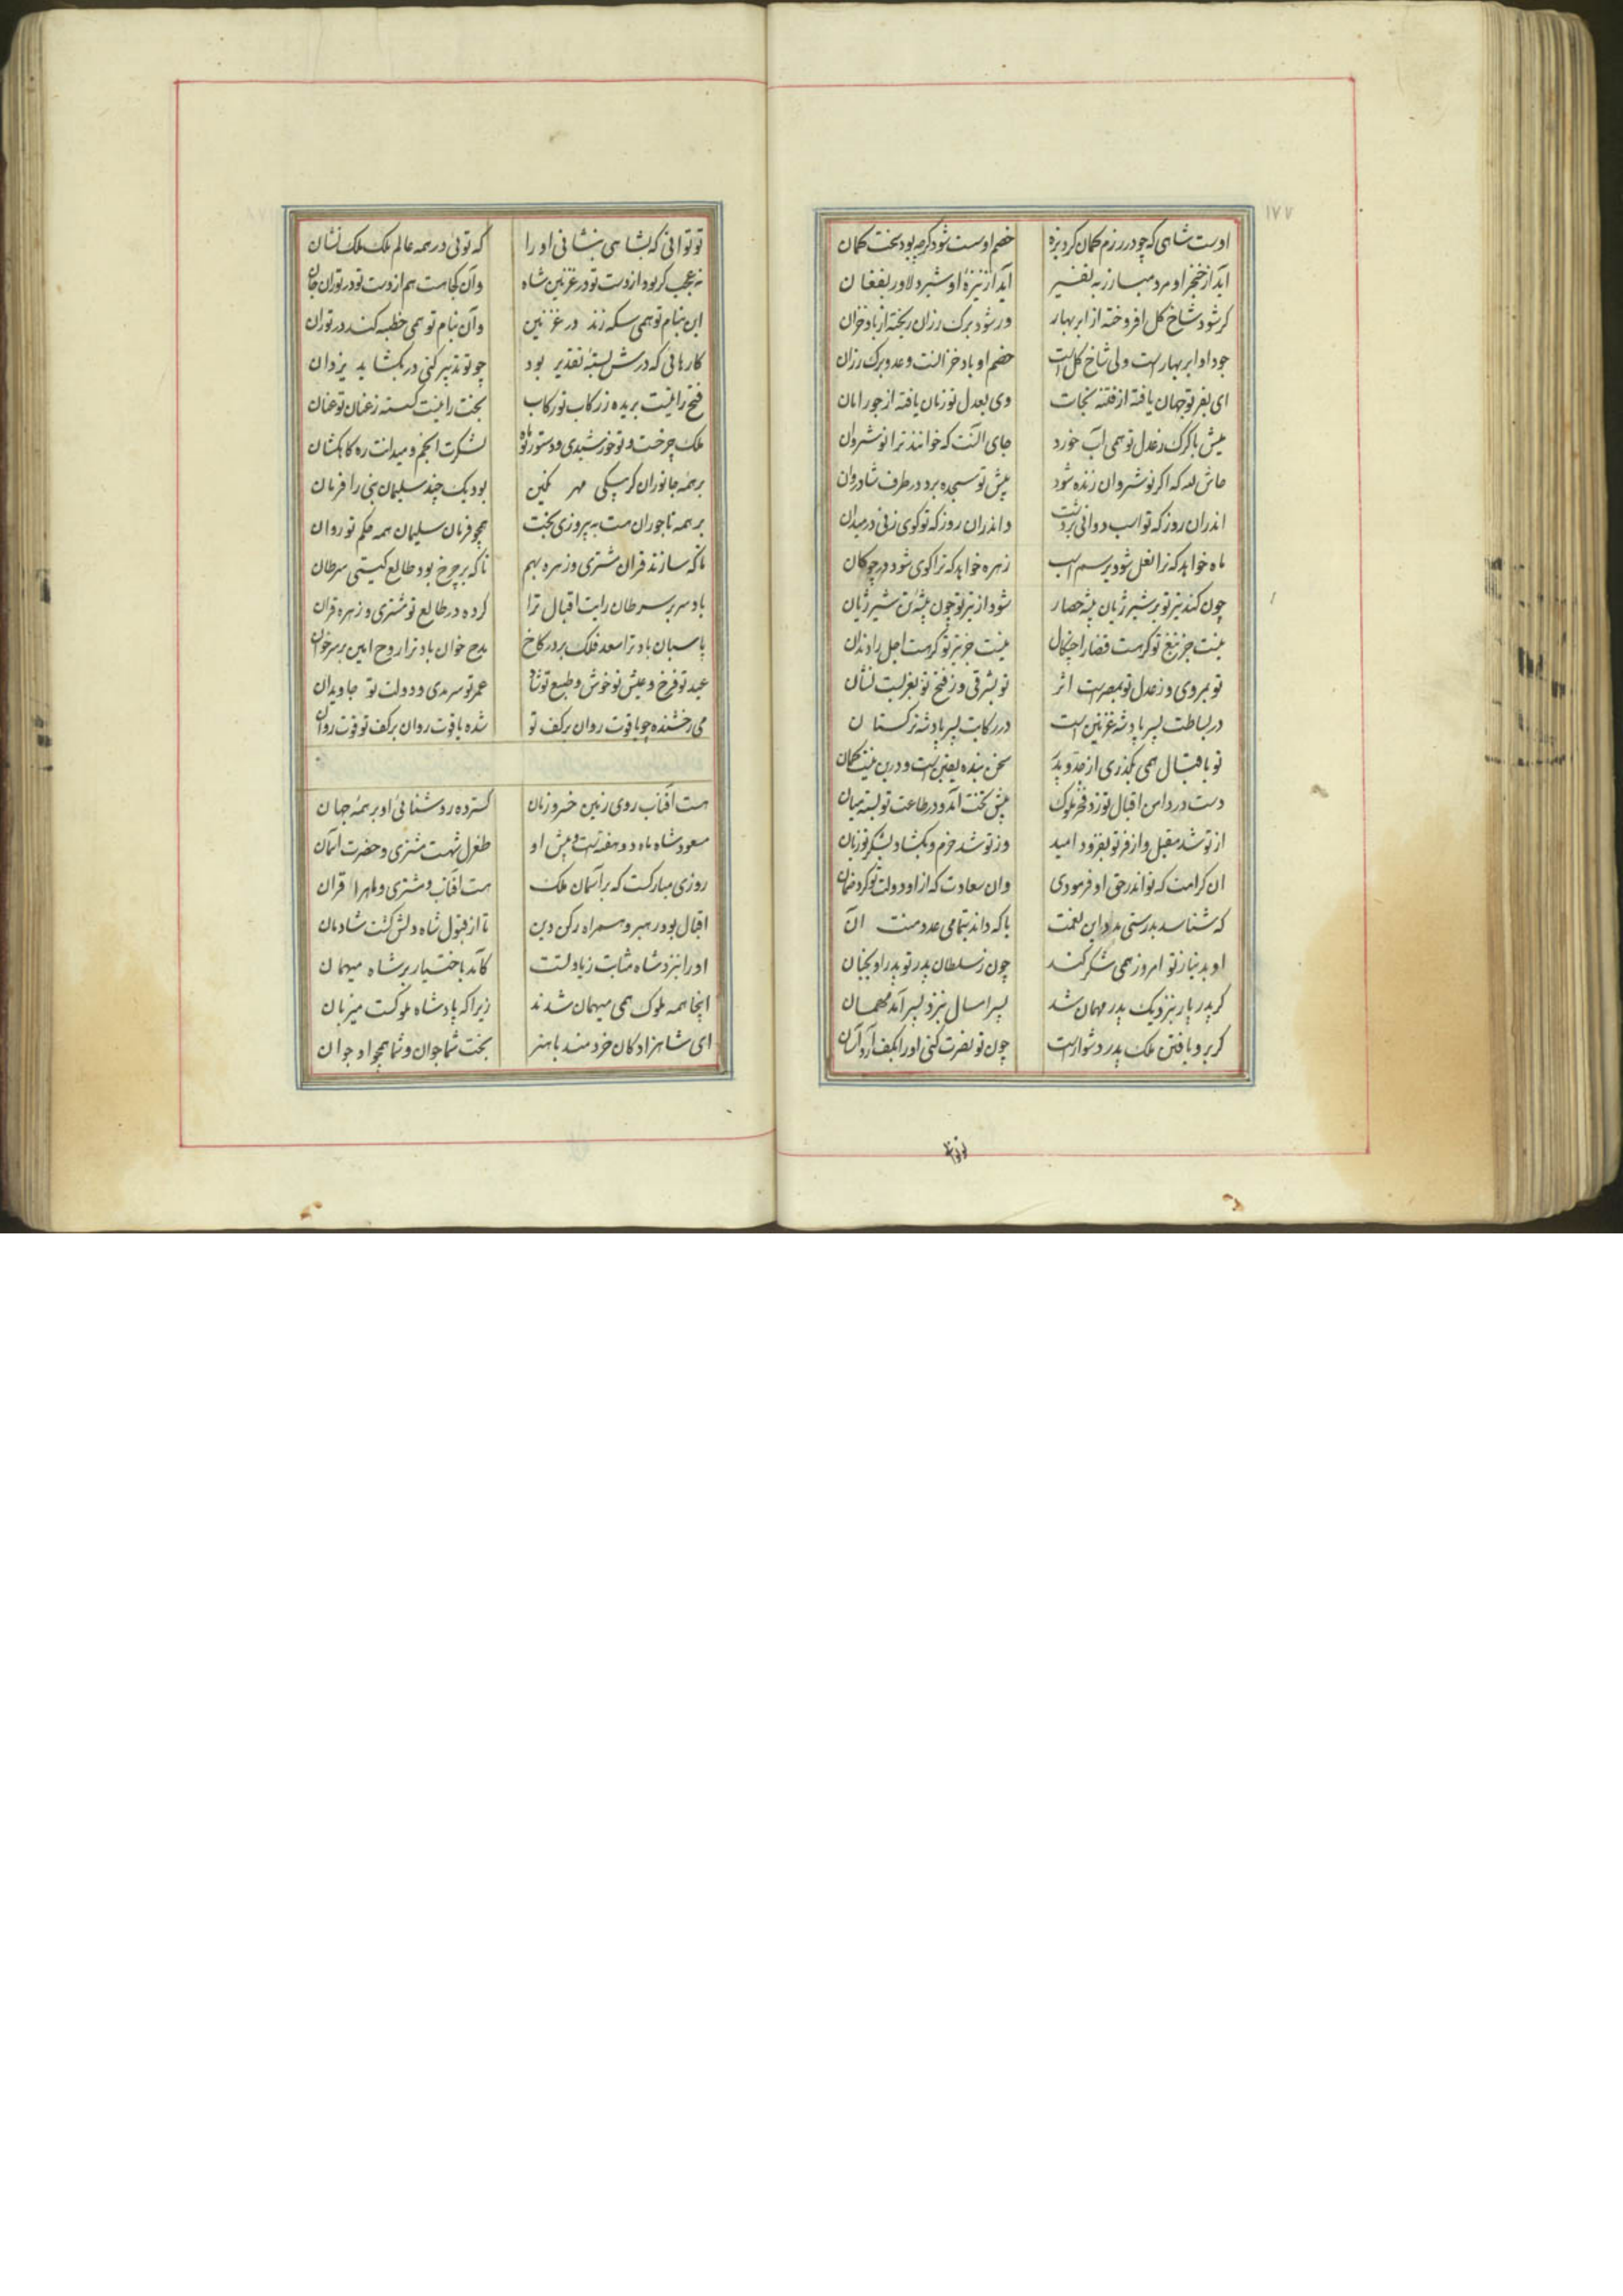 ۱۷۷
اوست شاهی که چو در رزم کمان کرد بزه خصم اوست شود کرچه بود سخت کمان
آید از خنجر او مرد مبارز به نفیر آید از نیزهٔ او شیر دلاور بفغان
کر شود شاخ کل افروخته از ابر بهار ور شود برک رزان ریخته از باد خزان
جود او ابر بهارست و ولی شاخ کلست خصم او باد خزانست و عدو برک رزان
ای بفر تو جهان یافته از فتنه نجات وی بعدل تو زمان یافته از جور امان
میش با کرک ز عدل تو همی آب خورد جای آنست که خوانند ترا نوشروان
حاش لله که اکر نوشروان زنده شود پیش تو سجده برد در طرف شادروان
اندران روز که تو اسب دوانی بر دشت واندران روز که تو کوی زنی در میدان
ماه خواهد که ترا نعل شود بر سم اسب زهره خواهد که ترا کوی شود در چوکان
چون کند تیر تو بر شیر ژیان بیشه حصار شود از تیر تو چون بیشه تن شیر ژیان
نیست جز تیغ تو کر هست قضا را چنکال نیست جز تیر تو کر هست اجل را دندان
تو بمروی و ز عدل تو بمصرست اثر تو بشرقی و ز فتح تو بغربست نشان
در بساطت پسر پادشه غزنین است در رکابت پسر پادشه ترکستان
تو باقبال همی بگذری از جد و پدر سخن بنده یقین است و درین نیست کمان
دست در دامن اقبال تو زد فخر ملوک پیش تخت آمد و در طاعت تو بسته میان
از تو شد مقبل و از فر تو بفزود امید وز تو شد خرم و بکشاد بشکر تو زبان
ان کرامت که تو اندر حق او فرمودی وان سعادت که از او دولت تو کرد ضمان
که شناسد بدرستی مدد این نعمت یا که داند بتمامی عدد منت آن
او بدینار تو امروز همی شکر کند چون ز سلطان پدر تو پدر او بجنان
کر پدر پار بنزدیک پدر مهمان شد پسر امسال بنزد پسر آمد مهمان
کر برو یافتن ملک پدر دشوار است چون تو نصرت کنی او را بکف آرد آسان
تو توانی
تو توانی که بشاهی بنشانی او را که توئی در همه عالم ملک ملک نشان
نه عجب کر بود از دست تو در غزنین شاه وآن کجا هست هم از دست تو در توران خان
این بنام تو همی سکه زند در غزنین وآن بنام تو همی خطبه کند در توران
کارهائی که درش بستهٔ تقدیر بود چو تو تدبیر کنی در بکشاید یزدان
فتح را نیست بریده ز رکاب تو رکاب بخت را نیست کسسته ز عنان تو عنان
ملک چرخست و تو خورشیدی و دستور تو ماه لشکرت انجم و میدانت ره کاهکشان
بر همه جانوران کر بیکی مهر نکین بود یک چند سلیمان نبی را فرمان
بر همه تاجوران هست به پیروزی بخت همچو فرمان سلیمان همه حکم تو روان
تا که سازند قران مشتری و زهره بهم تا که بر چرخ بود طالع کیتی سرطان
باد سر بر سرطان رایت اقبال ترا کرده در طالع تو مشتری و زهره قران
پاسبان باد ترا سعد فلک بر در کاخ مدح خوان باد ترا روح امین بر سر خوان
عید تو فرخ و عیش تو خوش و طبع تو شاد عمر تو سرمدی و دولت تو جاویدان
می رخشنده چو یاقوت روان بر کف تو شده یاقوت روان بر کف تو قوت روان
هست آفتاب روی زمین خسرو زمان کسترده روشنائی او بر همه جهان
مسعود شاه ماه دو هفته است پیش او طغرل شهست مشتری و حضرت آسمان
روزی مبارکست که بر آسمان ملک هست آفتاب و مشتری و ماه را قران
اقبال بود رهبر و همراه رکن دین تا از قبول شاه دلش کشت شادمان
او را بنزد شاه مثابت زیادتست کآمد باختیار بر شاه میهمان
اینجا همه ملوک همی میهمان شدند زیرا که پادشاه ملوکست میزبان
ای شاهزادکان خردمند با هنر بخت شما جوان و شما همچو او جوان